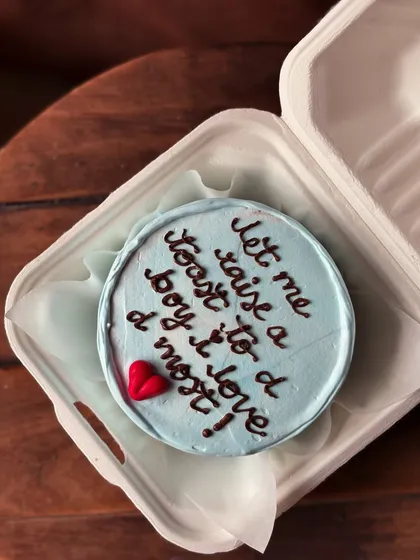 let me
raise a
toast to d
boy i love
d most!